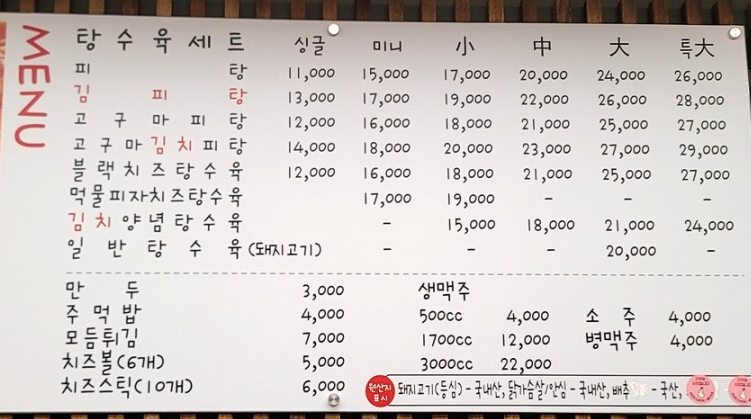 MENU
탕수육세트 싱글 미니 小 中 大 특大
피탕 11,000 15,000 17,000 20,000 24,000 26,000
김피탕 13,000 17,000 19,000 22,000 26,000 28,000
고구마피탕 12,000 16,000 18,000 21,000 25,000 27,000
고구마김치피탕 14,000 18,000 20,000 23,000 27,000 29,000
블랙치즈탕수육 12,000 16,000 18,000 21,000 25,000 27,000
먹물피자치즈탕수육 17,000 19,000 - - -
김치양념탕수육 - 15,000 18,000 21,000 24,000
일반탕수육(돼지고기) - - - 20,000 -
만두 3,000 생맥주
주먹밥 4,000 500cc 4,000 소주 4,000
모듬튀김 7,000 1700cc 12,000 병맥주 4,000
치즈볼(6개) 5,000 3000cc 22,000
치즈스틱(10개) 6,000 원산지 표시 돼지고기(등심) - 국내산, 닭가슴살/안심 - 국내산, 배추 - 국산,